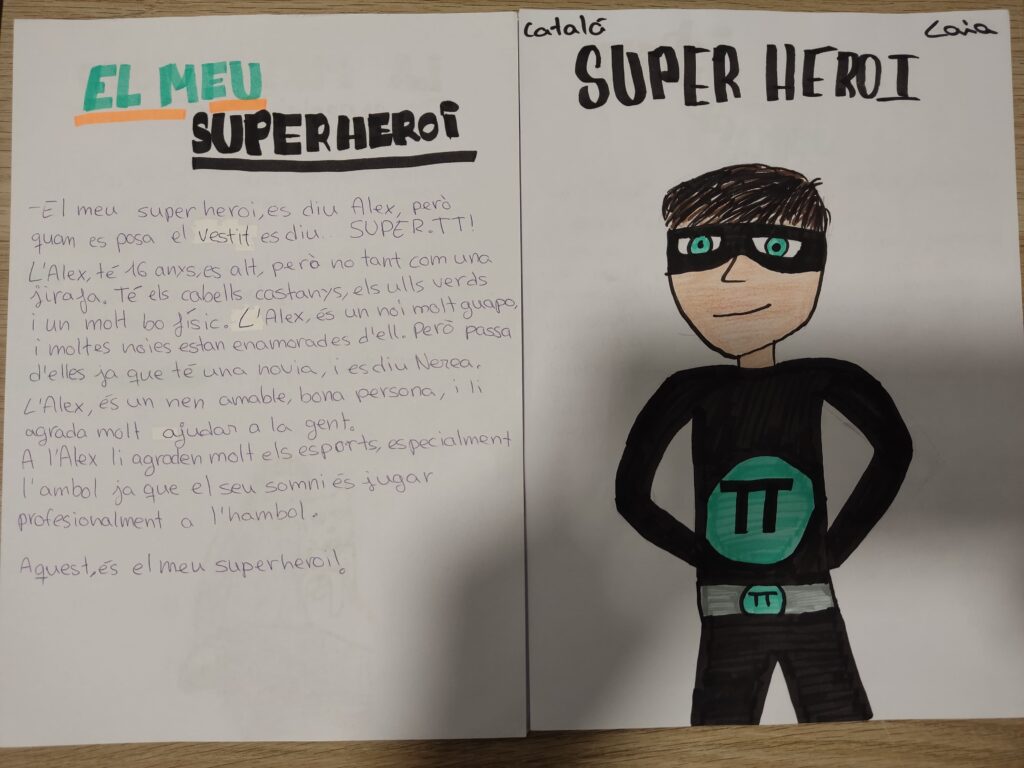 EL MEU
SUPERHEROI
-El meu super heroi, es diu Alex, però
quan es posa el vestit es diu... SUPER.TT!
L'Alex, té 16 anys, es alt, però no tant com una
jirafa. Té els cabells castanys, els ulls verds
i un molt bo físic. L'Alex, és un noi molt guapo,
i moltes noies estan enamorades d'ell. Però passa
d'elles ja que té una novia, i es diu Nerea.
L'Alex, és un nen amable, bona persona, i li
agrada molt ajudar a la gent.
A l'Alex li agraden molt els esports, especialment
l'ambol ja que el seu somni és jugar
profesionalment a l'hambol.
Aquest, és el meu superheroi!
Català
Laia
SUPER HEROI
TT
TT